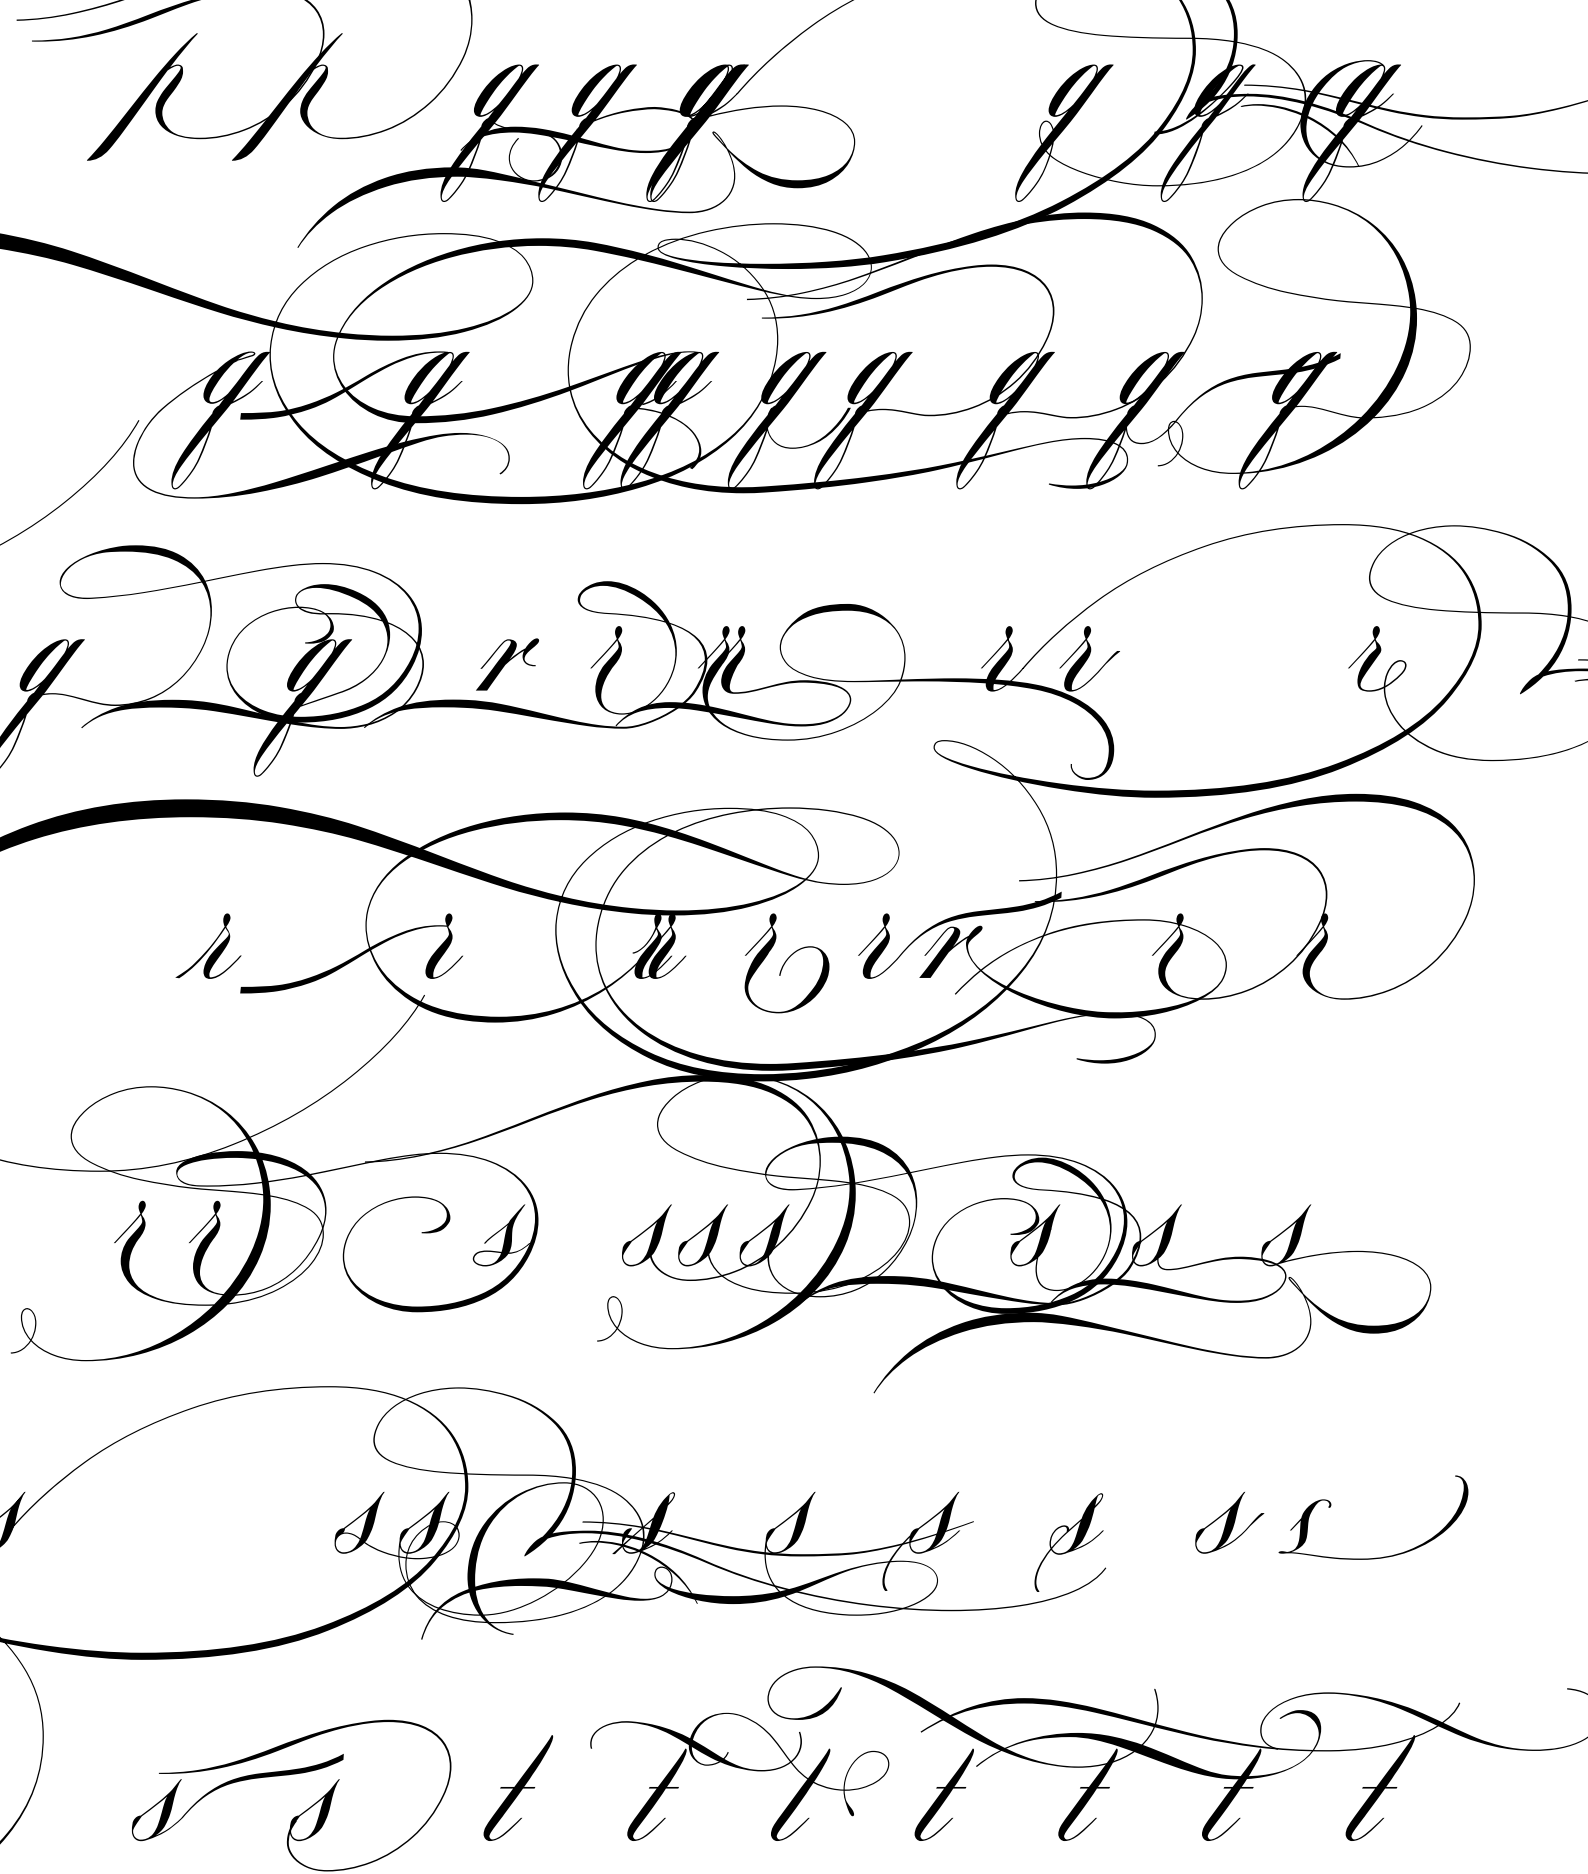 p p q q q q q q q
q q q q q q q q q
q q r r r r r r r
r r r r r r r r r
r r s s s s s s s
s s s s s s s s s
s s t t t t t t t